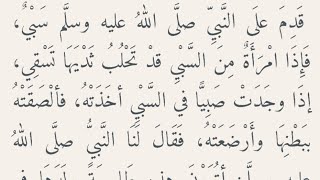 قَدِمَ علَى النَّبيِّ صلَّى اللهُ عليه وسلَّم سَبْيٌ،
فَإِذَا امْرَأَةٌ مِنَ السَّبْيِ قدْ تَحْلُبُ ثَدْيَهَا تَسْقِي،
إذَا وجَدَتْ صَبِيًّا في السَّبْيِ أخَذَتْهُ، فألْصَقَتْهُ
ببَطْنِهَا وأَرْضَعَتْهُ، فَقَالَ لَنَا النَّبيُّ صلَّى اللهُ